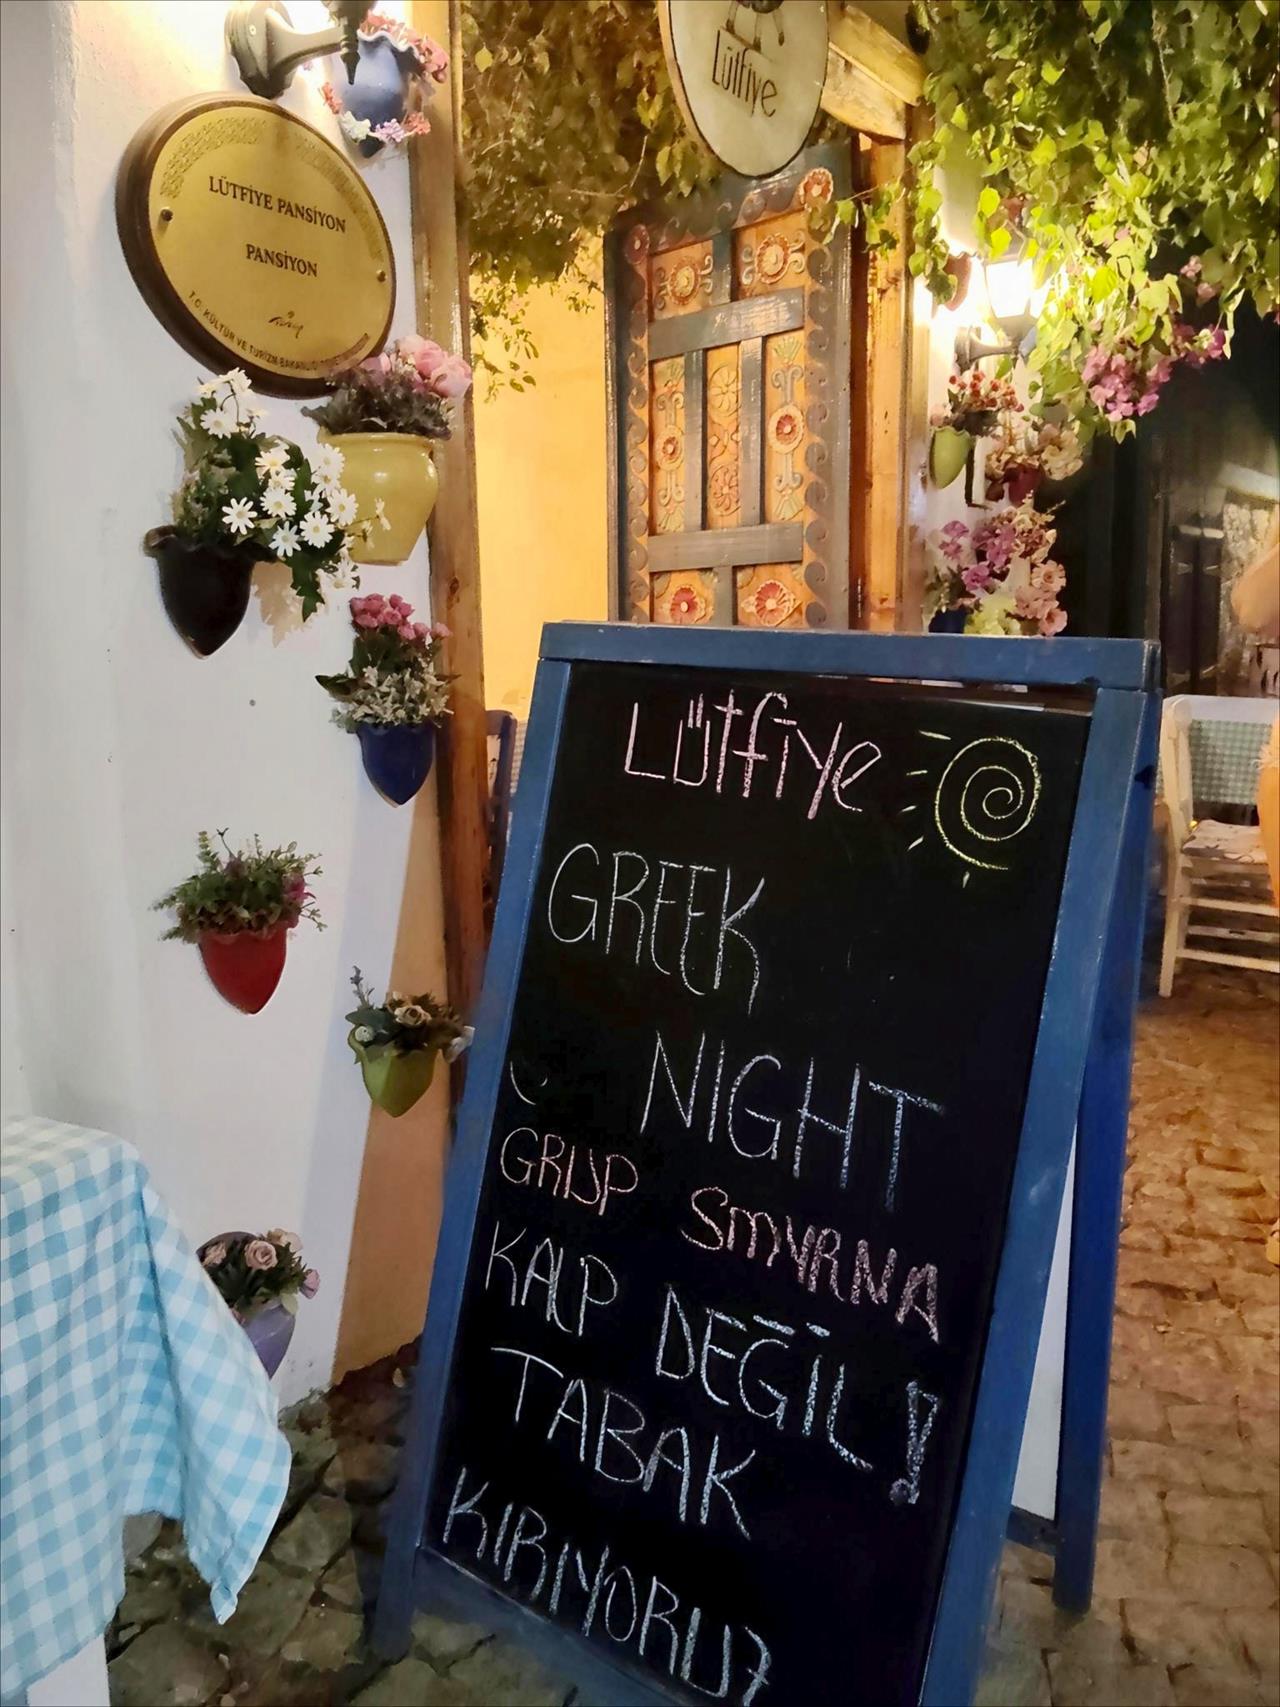 Lütfiye
LÜTFİYE PANSİYON
PANSİYON
Türkiye
T.C. KÜLTÜR VE TURİZM BAKANLIĞI
Lütfiye
GREEK
NIGHT
GRUP SMYRNA
KALP DEĞİL!
TABAK
KIRIYORUZ